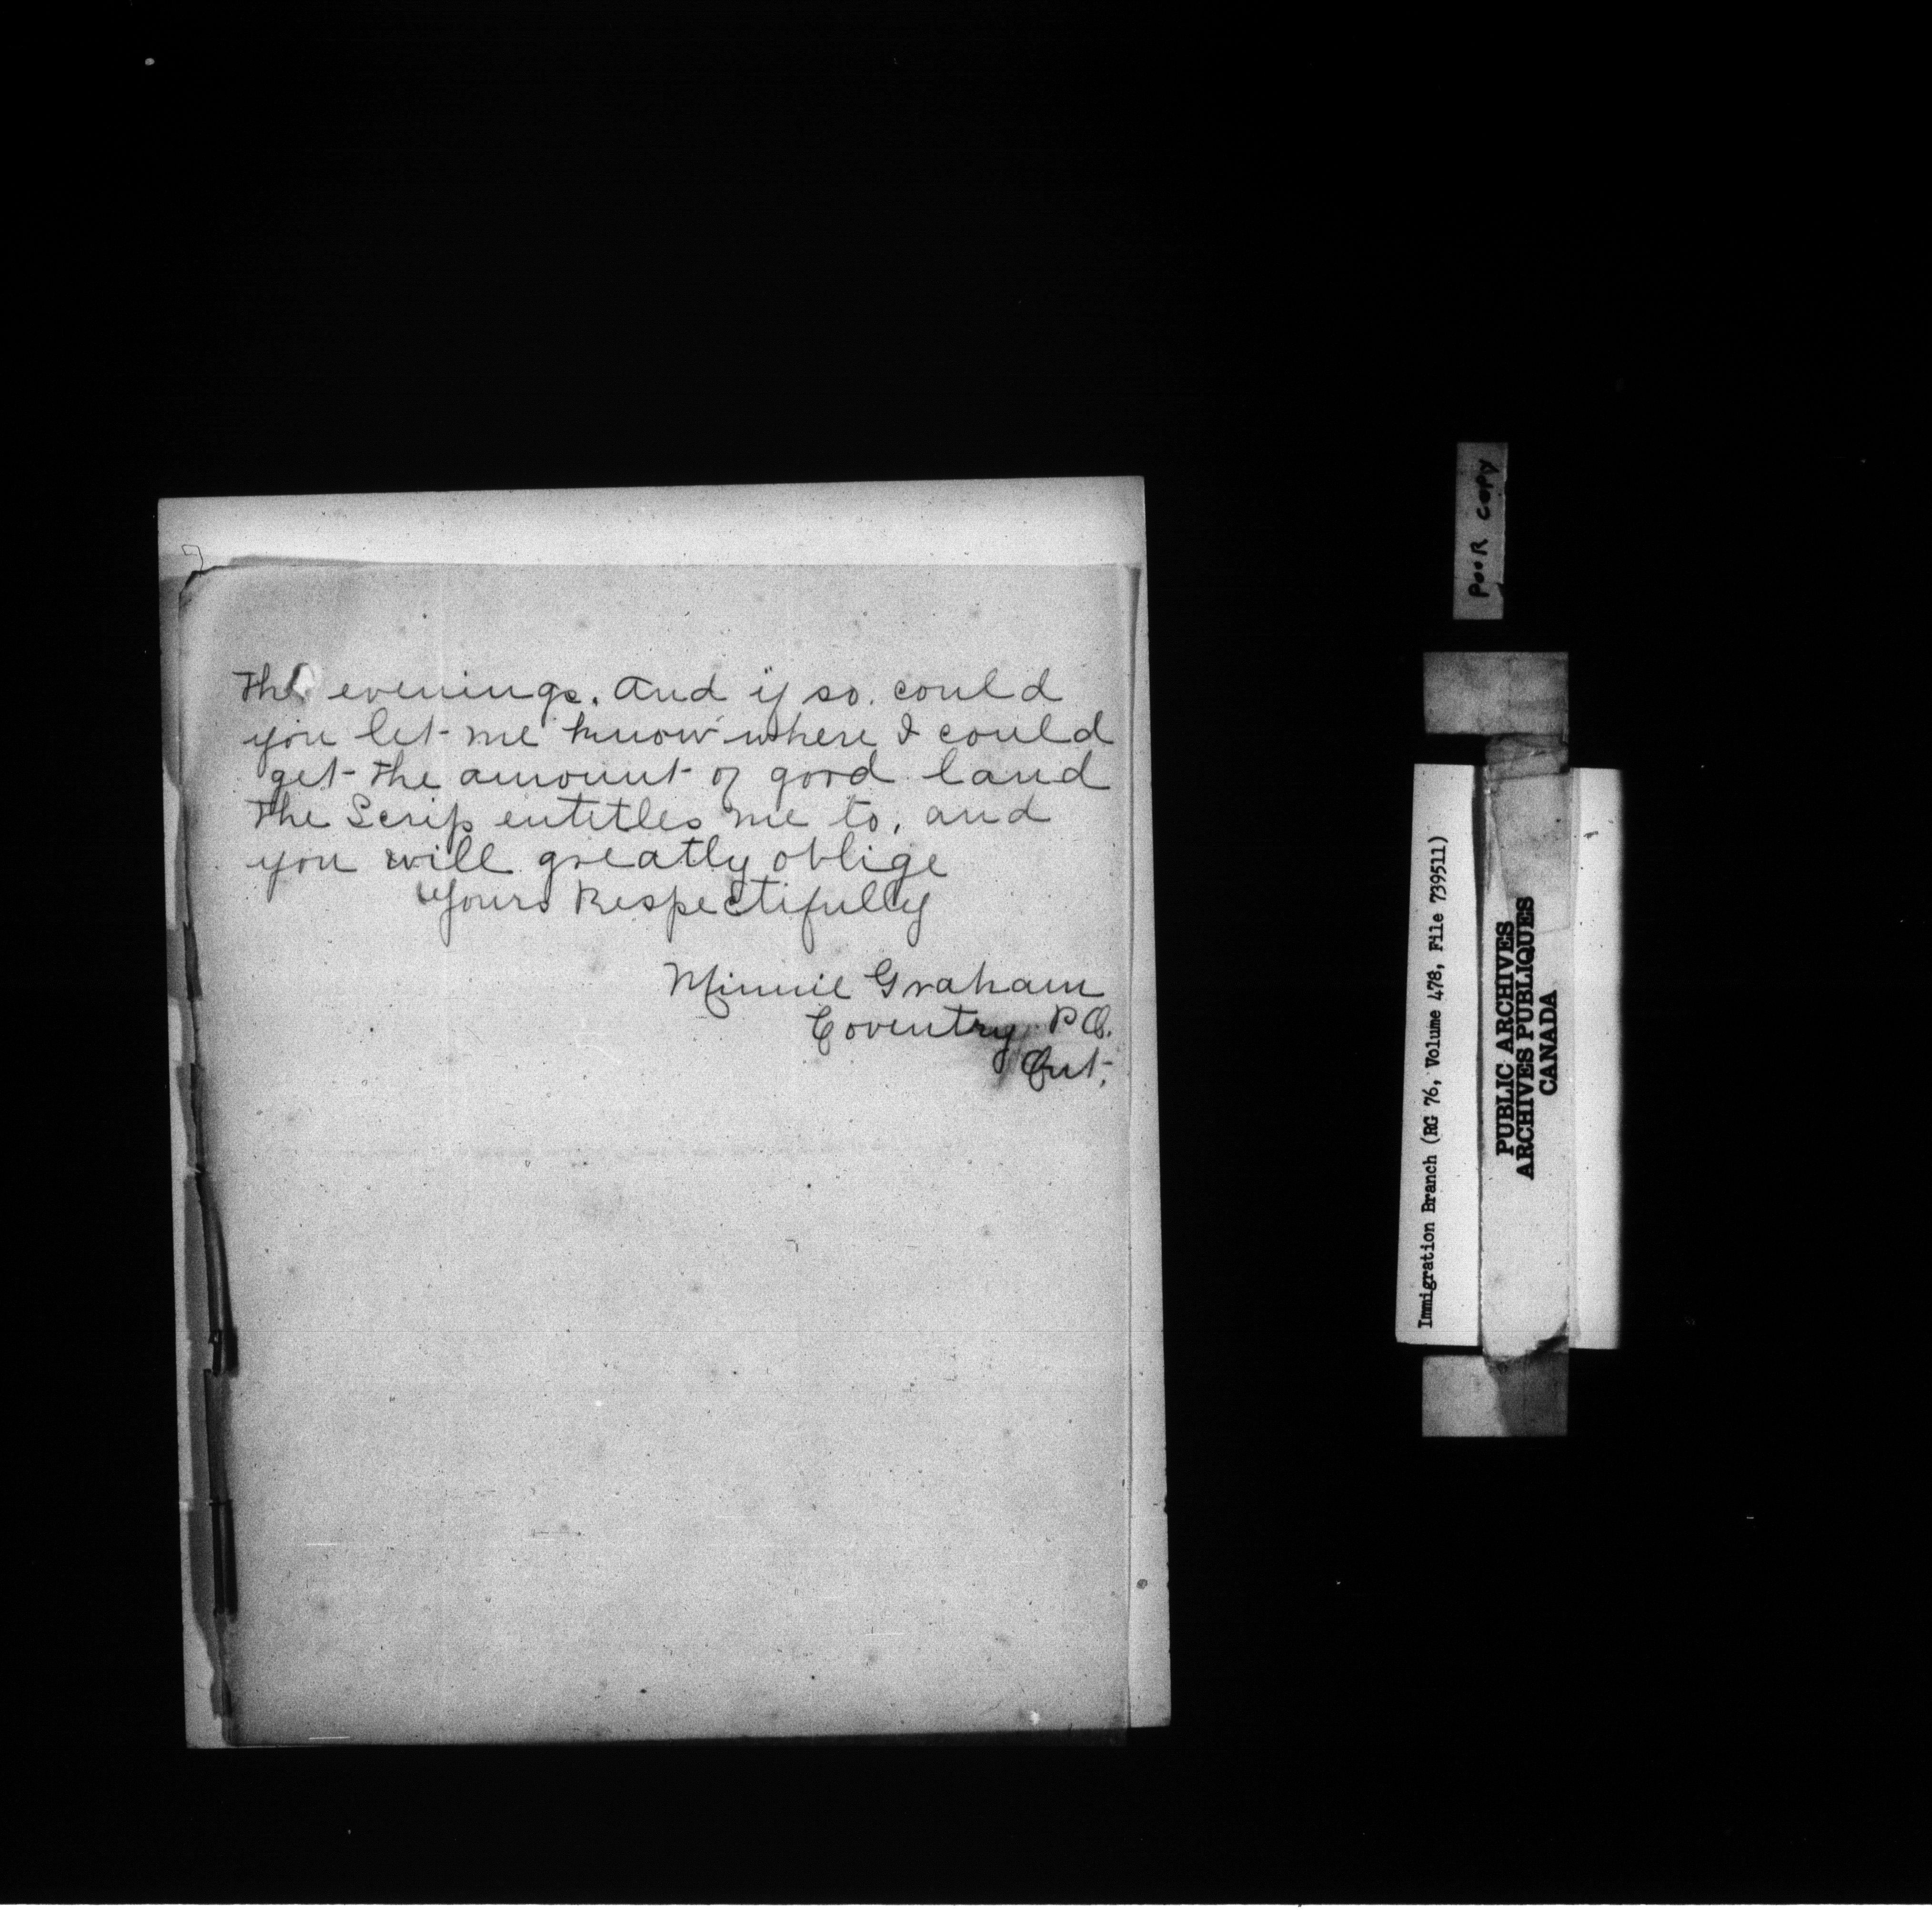 The evenings. And if so. could
you let me know where I could
get the amount of good land
the Scrip entitles me to, and
you will greatly oblige
Yours Respectifully
Minnie Graham
Coventry P.O.
Ont.
POOR COPY
Immigration Branch (RG 76, Volume 478, File 739511)
PUBLIC ARCHIVES
ARCHIVES PUBLIQUES
CANADA